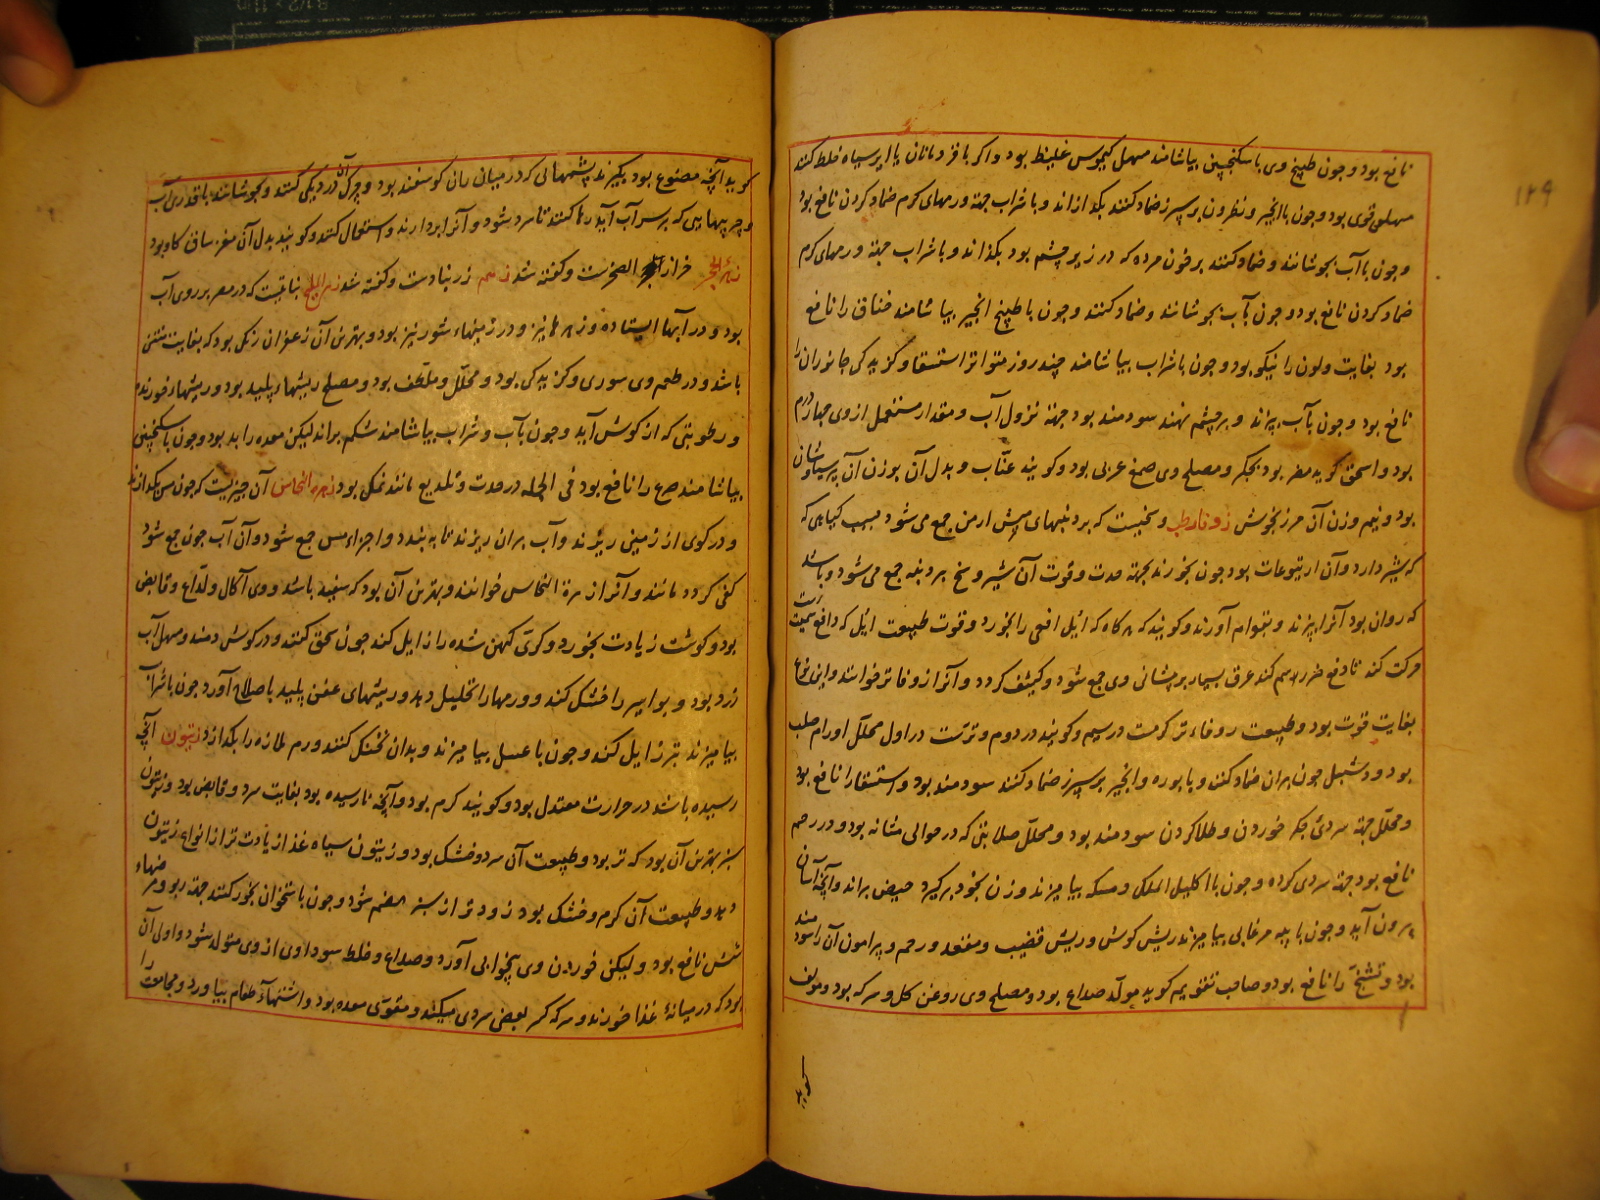 نافع بود و چون طبیخ وی با سکنجبین بیاشامند مسهل کیموس غلیظ بود و اگر با قردمانان یا ایرسیاه خلط کنند
مسهلی قوی بود و چون با انجیر و نطرون بر سپرز ضماد کنند بکدازاند و با شراب جهة ورمهای کرم ضماد کردن نافع بود
و چون با آب بجوشانند و ضماد کنند بر خون مرده که در زیر چشم بود بکذاند و با شراب جهة ورمهای کرم
ضماد کردن نافع بود و چون بآب بجوشانند و ضماد کنند و چون با طبیخ انجیر بیاشامند خناق را نافع
بود بغایت و لون را نیکو بود و چون با شراب بیاشامند چند روز متواتر استسقا و کزیدکی جانوران را
نافع بود و چون بآب بپزند و بر چشم نهند سودمند بود جهة نزول آب و مقدار مستعمل از وی چهار درم
بود و اسحق کوید مضر بود بجکر و مصلح وی صمغ عربی بود و کویند عناب و بدل آن بوزن آن پرسیاوشان
بود و نیم وزن آن مرزنجوش زوفا رطب وسخیست که بر دنبهای میش ارمن جمع می شود بسبب کیاهی که
که شیر دارد و آن از یتوعات بود چون بخورند بجهة حدت و قوت آن شیر وسخ بر دنبه جمع می شود و باشد
که روان بود آنرا بپزند و بقوام آورند و کویند که هر کاه که ایل افعی را بخورد و قوت طبیعت ایل که دافع سمیت است
حرکت کند تا دفع ضرر سم کند عرق بسیار بر پشانی وی جمع شود و کثیف کردد و آنرا زوفا تر خوانند و این نوع
بغایت قوت بود و طبیعت زوفاء تر کرمست در سیم و کویند در دوم و ترست در اول محلل اورام صلب
بود و دشبل چون بران ضماد کنند و با بوره و انجیر بر سپرز ضماد کنند سودمند بود و استسقا را نافع بود
و محلل جهة سردی جکر خوردن و طلا کردن سودمند بود و محلل صلابتی که در حوالی مثانه بود و در رحم
نافع بود جهة سردی کرده و چون با اکلیل الملک و مسکه بیامیزند و زن بخود برکیرد حیض براند و بچه آسان
بیرون آید و چون با پیه مرغابی بیامیزند ریش کوش و ریش قضیب و مقعد و رحم و پیرامون آن را سودمند
بود و تشنج را نافع بود و صاحب تقویم کوید مولد صداع بود و مصلح وی روغن کل و سرکه بود و مولف
کوید
۱۲۹
کوید آنچه مصنوع بود بکیرند پشمهائی که در میان ران کوسفند بود و چرک آن در دیکی کنند و بجوشانند با قدری آب
و چربیهایی که بر سر آب آید رها کنند تا سرد شود و آنرا بردارند و استعمال کنند و کویند بدل آن مغز ساق کاو بود
زهرة الحجر خزاز الصخرست و کفته شد زرنبادست و کفته شد زهرة الملح نباتیست که در مصر بر روی آب
بود و در آبها ایستاده و زهرها نیز و در زمینهاء شور نیز بود و بهترین آن زعفران رنکی بود که بغایت منتن
باشد و در طعم وی شوری و کزیدکی بود و محلل و ملطف بود و مصلح ریشهاء پلید بود و ریشهاء خورنده
و رطوبتی که از کوش آید و چون بآب و شراب بیاشامند شکم براند لیکن معده را بد بود و چون با سکنجبین
بیاشامند صرع را نافع بود فی الجمله در حدت و تلدیع مانند نمکی بود زهرة النحاس آن چیزیست که چون مس بکدازند
و در کوی از زمینی ریزند و آب بران ریزند تا به بندد و اجزاء مس جمع شود و آن آب چون جمع شود
کفی کردد مانند و آنرا زهرة النحاس خوانند و بهترین آن بود که سفید باشد و وی آکال و لذاع و قابض
بود و کوشت زیادت بخورد و کری کهن شده را زایل کند چون سحق کنند و در کوش دمند و مسهل آب
زرد بود و بواسیر را خشک کند و ورمها را تحلیل دهد و ریشهای عفن پلید باصلاح آورد چون با شراب
بیامیزند بثر زایل کند و چون با عسل بیامیزند و بدان تحنک کنند ورم ملازه را بکدازد زیتون آنچه
رسیده باشد در حرارت معتدل بود و کویند کرم بود و آنچه نارسیده بود بغایت سرد و قابض بود و زیتون
سبز بهترین آن بود که تر بود و طبیعت آن سرد و خشک بود و زیتون سیاه غذا زیادت تر از انواع زیتون
دهد و طبیعت آن کرم و خشک بود زودتر از سبز هضم شود و چون با استخوان بخور کنند جهة ربو و مرضهاء
شش نافع بود و لیکن خوردن وی بیخوابی آورد و صداع و خلط سوداوی از وی متولد شود و اولی آن
بود که در میانهٔ غذا خورند و سرکه کسر بعض سردی میکند و مقوی معده بود و اشتهاء طعام بیاورد و مجامعت را